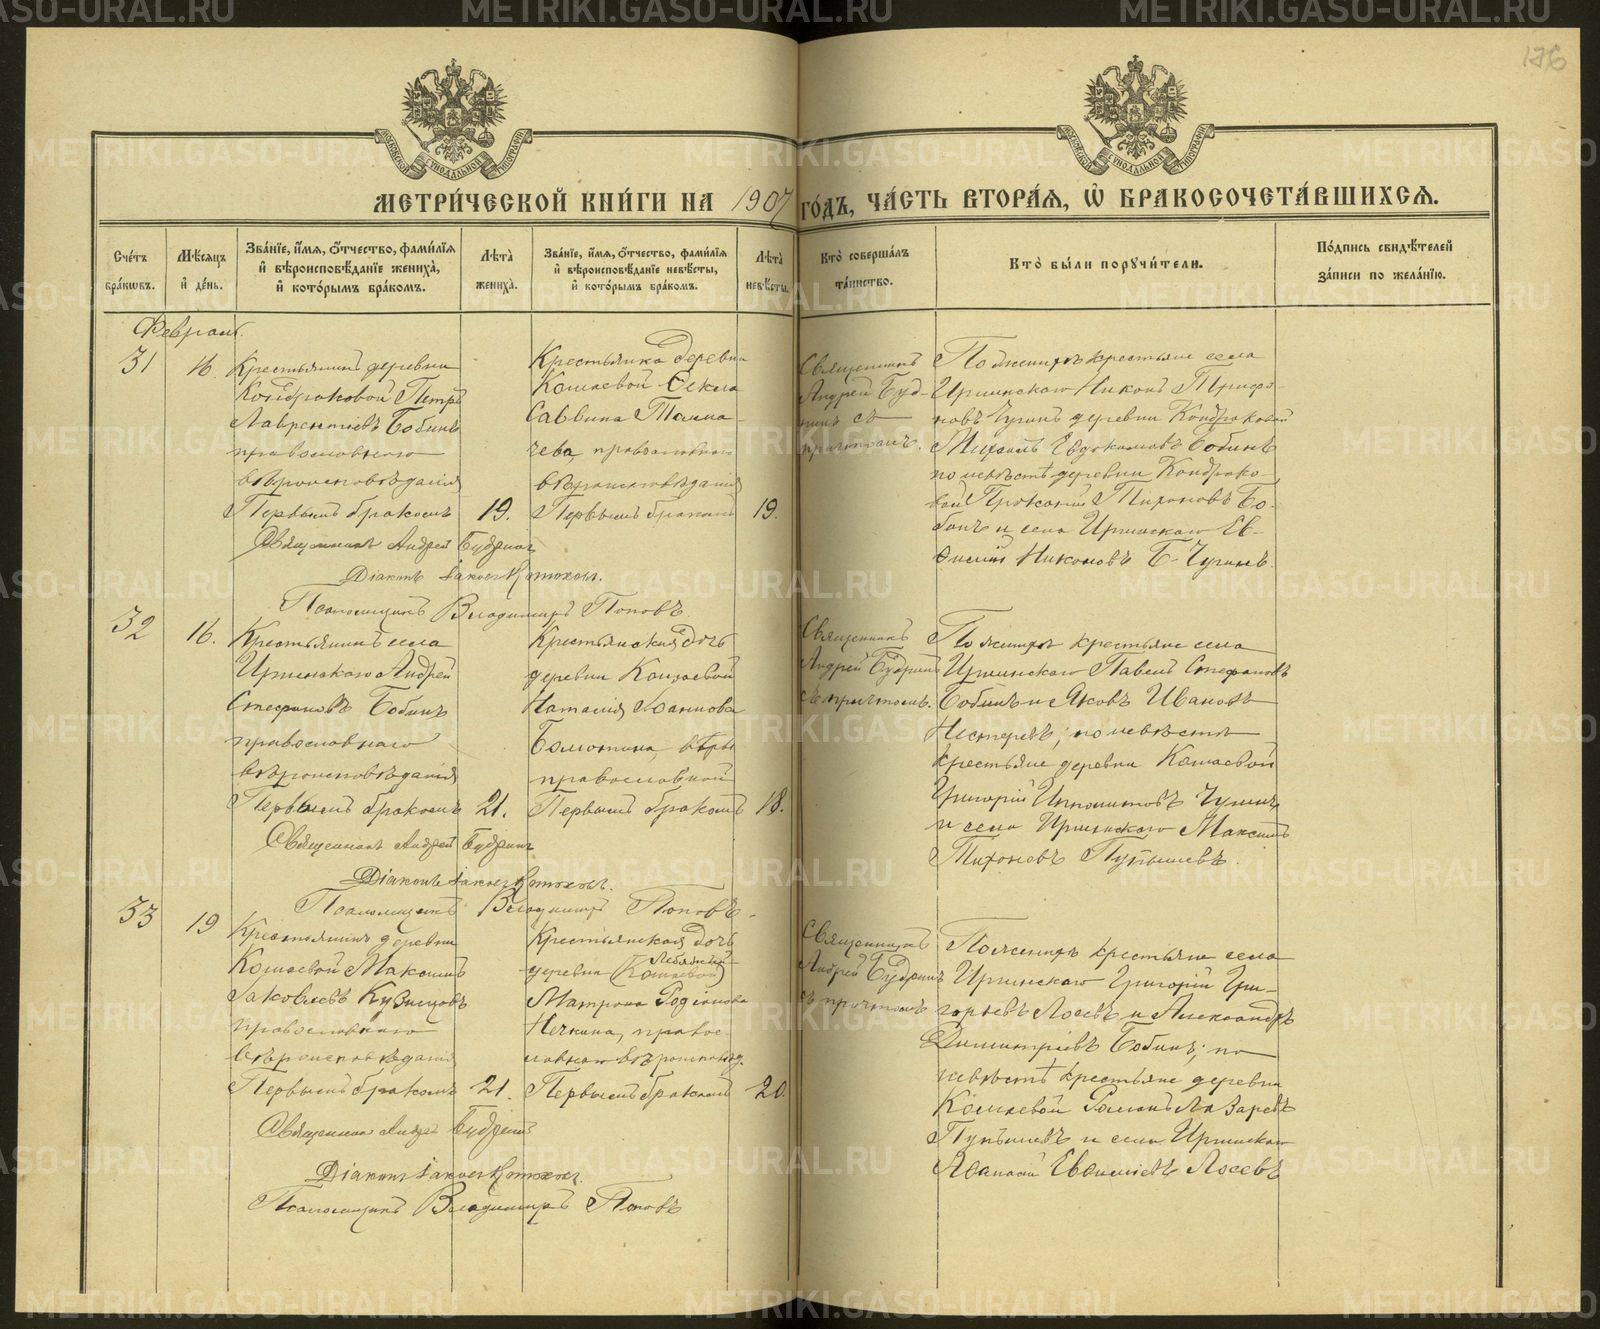 136
МОСКОВСКОЙ СѴНОДАЛЬНОЙ ТИПОГРАФІИ
МОСКОВСКОЙ СѴНОДАЛЬНОЙ ТИПОГРАФІИ
МЕТРИ́ЧЕСКОЙ КНИ́ГИ НА 1907 ГО́ДЪ, ЧА́СТЬ ВТОРА́Я, Ѡ҆ БРАКОСОЧЕТА́ВШИХСЯ.
Сче́тъ бра́кѡвъ.
Мѣ́сяцъ и҆ де́нь.
Зва́нїе, и҆́мя, ѻ҆́тчество, фами́лїя и҆ вѣроисповѣ́данїе жениха̀, и҆ кото́рымъ бра́комъ.
Лѣ́та жениха̀.
Зва́нїе, и҆́мя, ѻ҆́тчество, фами́лїя и҆ вѣроисповѣ́данїе невѣ́сты, и҆ кото́рымъ бра́комъ.
Лѣ́та невѣ́сты.
Кто̀ соверша́лъ та́инство.
Кто̀ бы́ли порꙋчи́тели.
По́дпись свидѣ́телей за́писи по жела́нїю.
Февраль.
31
16.
Крестьянинъ деревни
Кондраковой Петръ
Лаврентьевъ Бобинъ
православнаго
вѣроисповѣданія
Первымъ бракомъ
19.
Крестьянка деревни
Кошаевой Ѳекла
Саввина Толма-
чева, православнаго
вѣроисповѣданія
Первымъ бракомъ
19.
Священникъ
Андрей Буд-
ринъ съ
причтомъ.
По женихѣ крестьяне села
Иргинскаго Никонъ Трифо-
новъ Чугинъ деревни Кондраковой
Михаилъ Евдокимовъ Бобинъ
по невѣстѣ деревни Кондрако-
вой Тихоновъ Бо-
бинъ и села Иргинскаго Ев-
ѳимій Никоновъ Б-Чугинъ.
Священникъ Андрей Будринъ
Діаконъ Іаковъ
Псаломщикъ Владимиръ Поповъ
32
16.
Крестьянинъ села
Иргинскаго Андрей
Стефановъ Бобинъ
православнаго
вѣроисповѣданія
Первымъ бракомъ
21.
Крестьянская дочь
деревни Кошаевой
Наталія Іоаннова
вѣры
православной
Первымъ бракомъ
18.
Священникъ
Андрей Будринъ
съ причтомъ.
По женихѣ крестьяне села
Иргинскаго Павелъ Стефановъ
Бобинъ и Яковъ Ивановъ
Нестеровъ; по невѣстѣ
крестьяне деревни Кошаевой
Григорій Ипполитовъ Чугинъ
и села Иргинскаго Максимъ
Тихоновъ Пупышевъ.
Священникъ Андрей Будринъ
Діаконъ Іаковъ
Псаломщикъ Владимиръ Поповъ.
33
19
Крестьянинъ деревни
Кошаевой Максимъ
Іаковлевъ Кузнецовъ
православнаго
вѣроисповѣданія
Первымъ бракомъ
21.
Крестьянская дочь
Лебяжьей
деревни (Кошаевой)
Матрона Родіонова
Нечкина, правос-
лавнаго вѣроисповѣд.
Первымъ бракомъ
20.
Священникъ
Андрей Будринъ
съ причтомъ
По женихѣ крестьяне села
Иргинскаго Григорій Гри-
горьевъ Лосевъ и Александръ
Димитріевъ Бобинъ; по
невѣстѣ крестьяне деревни
Кошаевой Романъ Лазаревъ
Пупышевъ и села Иргинскаго
Аѳанасій Евѳиміевъ Лосевъ
Священникъ Андрей Будринъ
Діаконъ Іаковъ
Псаломщикъ Владимиръ Поповъ
METRIKI.GASO-URAL.RU